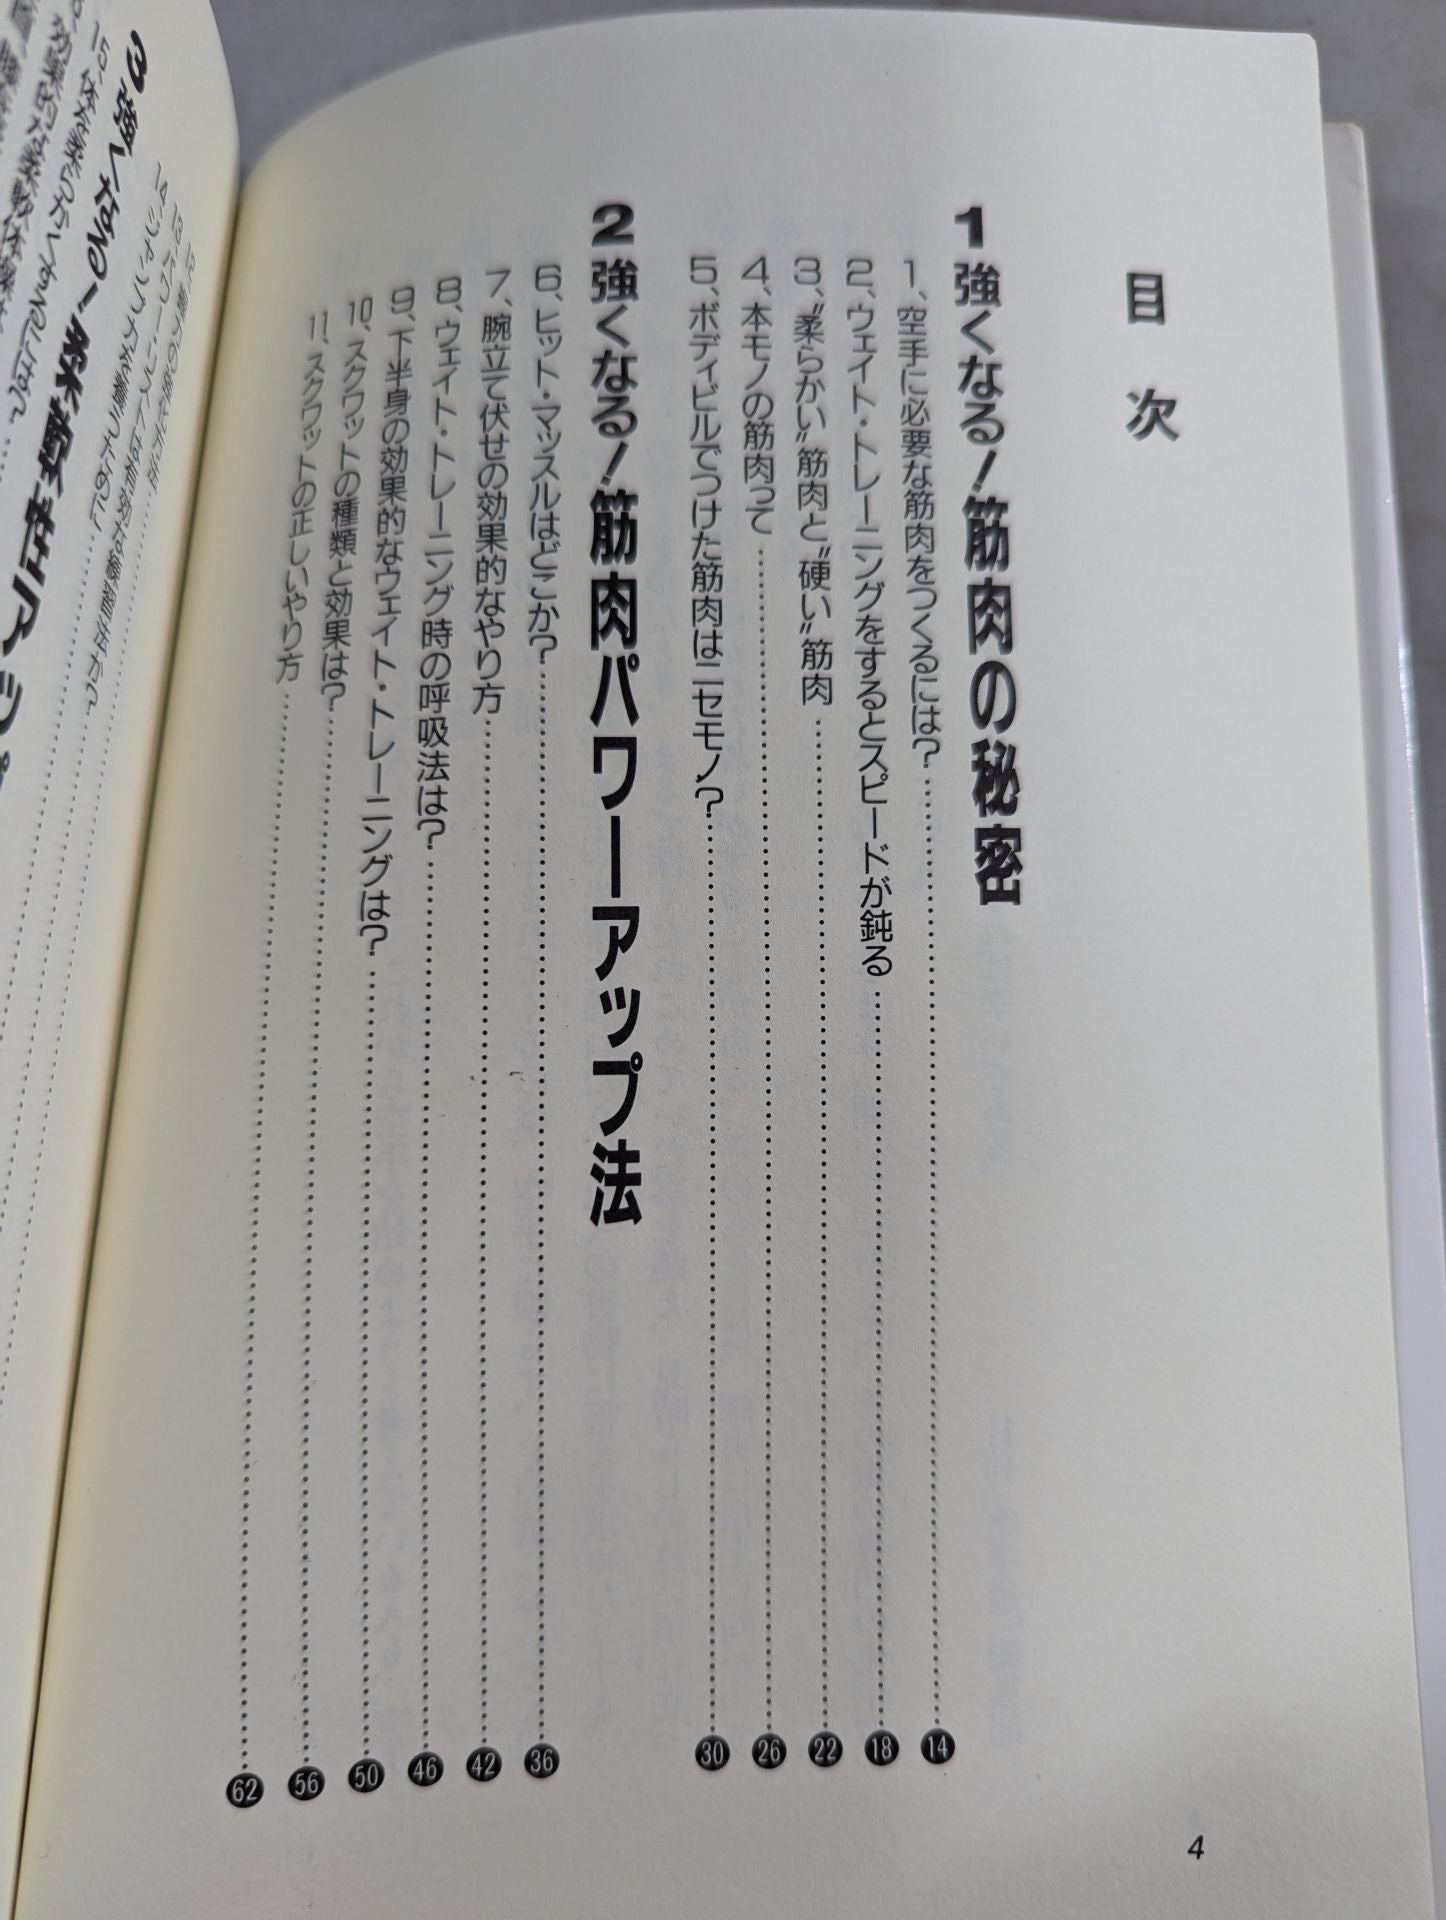 目次
1 強くなる！筋肉の秘密
1、空手に必要な筋肉をつくるには？ 14
2、ウェイト・トレーニングをするとスピードが鈍る 18
3、〝柔らかい〟筋肉と〝硬い〟筋肉 22
4、本モノの筋肉って 26
5、ボディビルでつけた筋肉はニセモノ？ 30
2 強くなる！筋肉パワーアップ法
6、ヒット・マッスルはどこか？ 36
7、腕立て伏せの効果的なやり方 42
8、ウェイト・トレーニング時の呼吸法は？ 46
9、下半身の効果的なウェイト・トレーニングは？ 50
10、スクワットの種類と効果は？ 56
11、スクワットの正しいやり方 62
4
14、ジャンプ力を養うために
3 強くなる！柔軟性アップ
15、体を柔らかくするには？